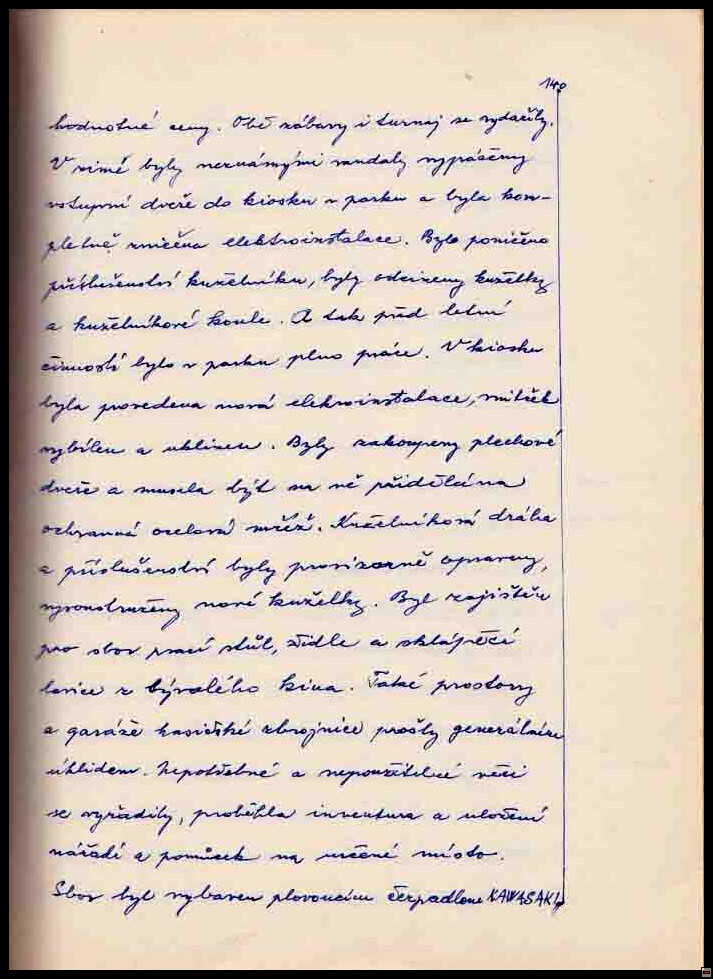 140
hodnotné ceny. Obě zábavy i turnaj se vydařily.
V zimě byly neznámými vandaly vypáčeny
vstupní dveře do kiosku v parku a byla kom-
pletně zničena elektroinstalace. Bylo poničeno
příslušenství kuželníku, byly odcizeny kuželky
a kuželníkové koule. A tak před letní
činností bylo v parku plno práce. V kiosku
byla provedena nová elekroinstalace, vnitřek
vybílen a uklizen. Byly zakoupeny plechové
dveře a musela být na ně přidělána
ochranná ocelová mříž. Kuželníková dráha
a příslušenství byly provizorně opraveny,
vysoustruženy nové kuželky. Byl zajištěn
pro sbor psací stůl, židle a sklápěcí
lavice z bývalého kina. Také prostory
a garáže hasičské zbrojnice prošly generálním
úklidem. Nepotřebné a nepoužitelné věci
se vyřadily, proběhla inventura a uložení
nářadí a pomůcek na určené místo.
Sbor byl vybaven plovoucím čerpadlem KAWASAKI,